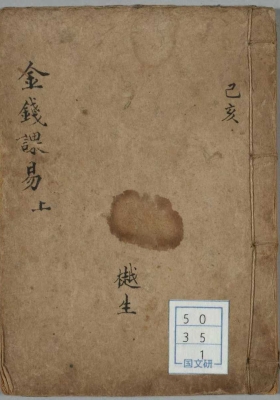 己亥
樾生
金錢課易 上
50
35
1
国文研